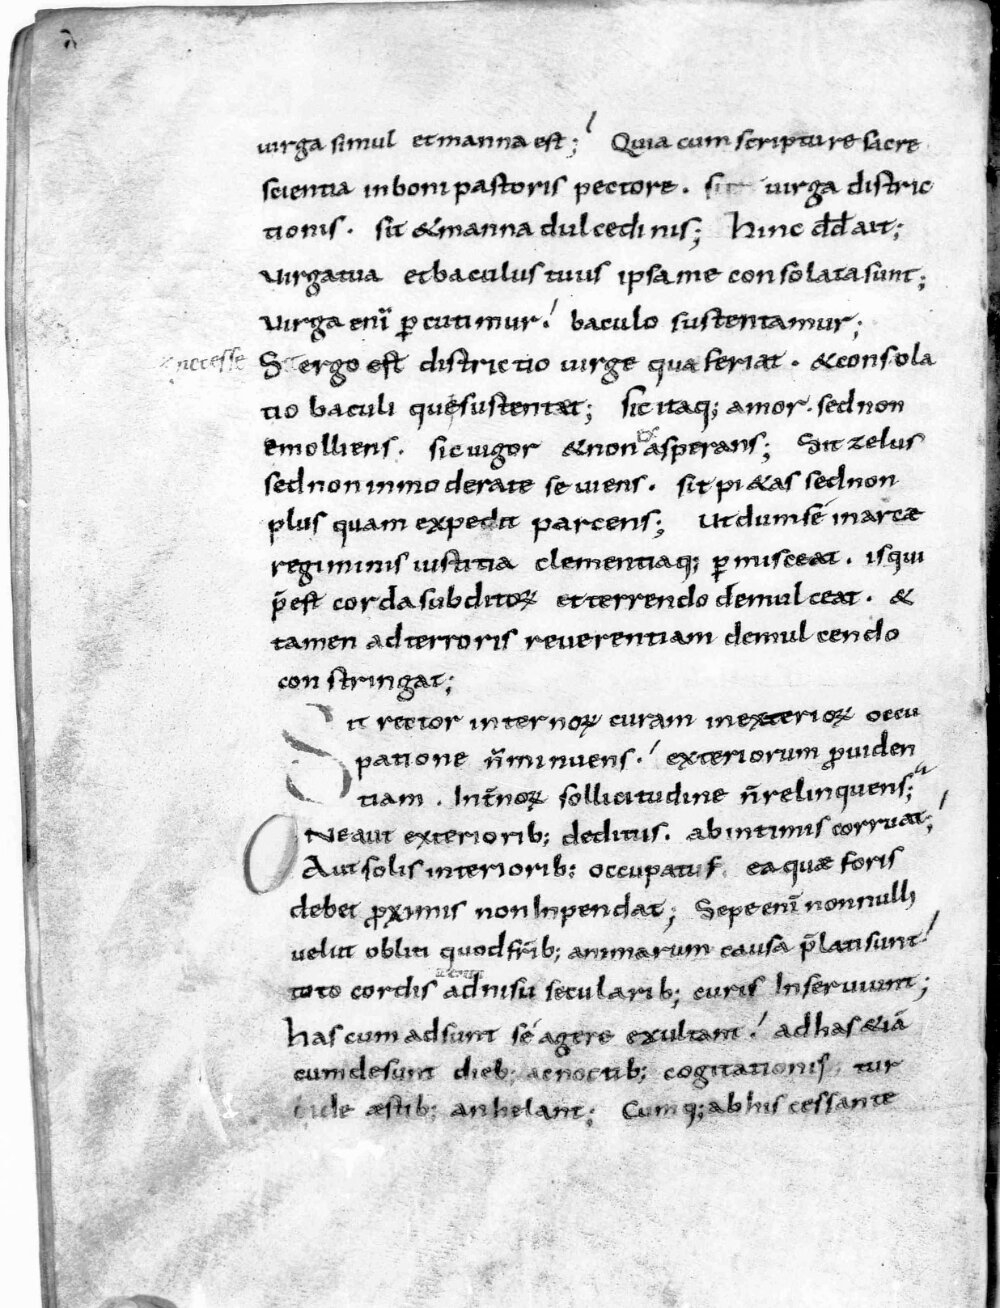 uirga simul et manna est; Quia cum scripture sacre
scientia in boni pastoris pectore. sit uirga distric
tionis. sit & manna dulcedinis; hinc dd̄ ait;
Virga tua et baculus tuus ipsa me consolata sunt;
Virga enī ꝑcutimur! baculo sustentamur;
necesse
S ergo est districtio uirge qua feriat. & consola
tio baculi quę sustentat; sic itaq; amor. sed non
emolliens. sic uigor & non
ex
asperans; Sit zelus
sed non inmoderate seuiens. sit pi&as sed non
plus quam expedit parcens; Ut dum se in arcæ
regiminis iustitia clementiaq; ꝑmisceat. is qui
p̄est corda subditoꝝ et terrendo demulceat. &
tamen ad terroris reuerentiam demulcendo
constringat;
Sit rector internoꝝ curam in exterioꝝ occu
patione n̄ minuens! exteriorum ꝓuiden
tiam. Int̄noꝝ sollicitudine n̄ relinquens;
Ne aut exteriorib; deditus. ab intimis corruat;
Aut solis interiorib; occupatus ea quæ foris
debet ꝓximis non Inpendat; Sepe enī nonnulli
uelut obliti quod fr̄ib; animarum causa p̄lati sunt!
toto cordis adnisu secularib; curis Inseruiunt;
has cum adsunt se agere exultant! ad has &iā
cum desunt dieb; ac noctib; cogitationis tur
bide æstib; anhelant; Cumq; ab his cessante